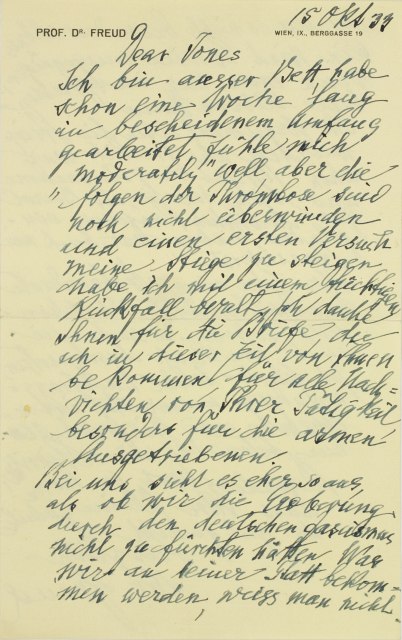 15 Okt 33
PROF. DR. FREUD
WIEN, IX., BERGGASSE 19
Dear Jones
Ich bin ausser Bett, habe
schon eine Woche lang
in bescheidenem Umfang
gearbeitet, fühle mich
"moderately" well aber die
folgen der Thrombose sind
noch nicht überwunden
und einen ersten Versuch
meine Stiege zu steigen
habe ich mit einem tüchtigen
Rückfall bezalt. Ich danke
Ihnen für die Briefe die
ich in dieser Zeit von Ihnen
bekommen für alle Nach=
richten von Ihrer Tätigkeit
besonders für die armen
Ausgetriebenen.
Bei uns sieht es eher so aus,
als ob wir die Eroberung
durch den deutschen
nicht zu fürchten hätten. Was
wir an seiner statt bekom=
men werden, weiss man nicht.